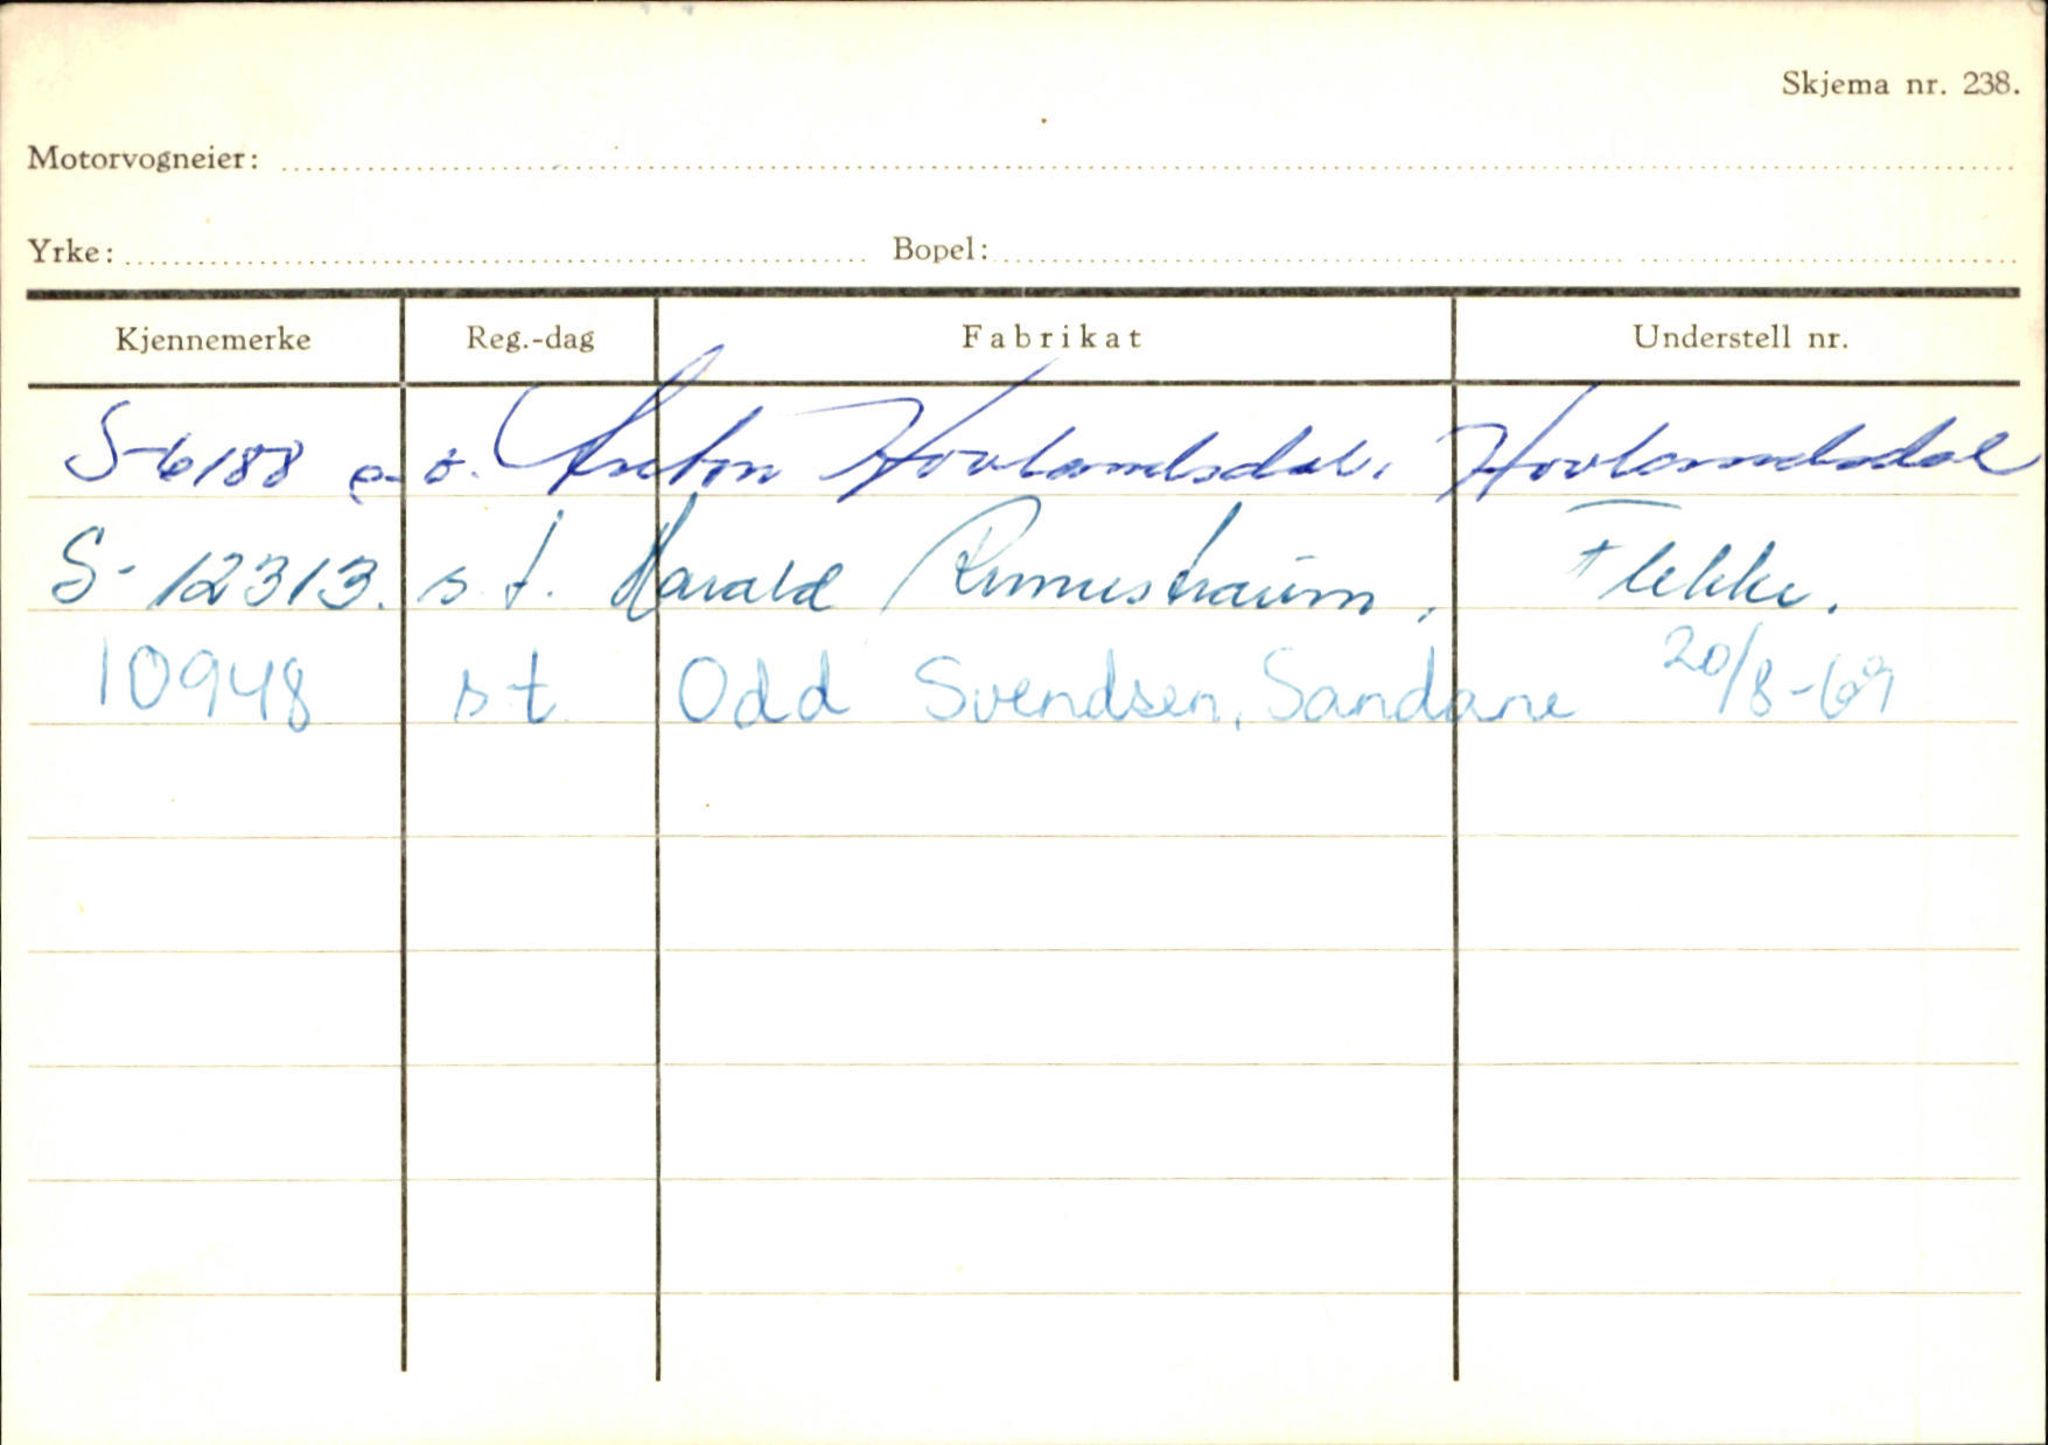 Skjema nr. 238.
Motorvogneier:
Yrke: Bopel:
Kjennemerke Reg.-dag Fabrikat Understell nr.
S-6188 Anton Hovlandsdal, Hovlandsdal
S-12313. s.t. Harald Flekke.
10948 st Odd Svendsen, Sandane 20/8-69